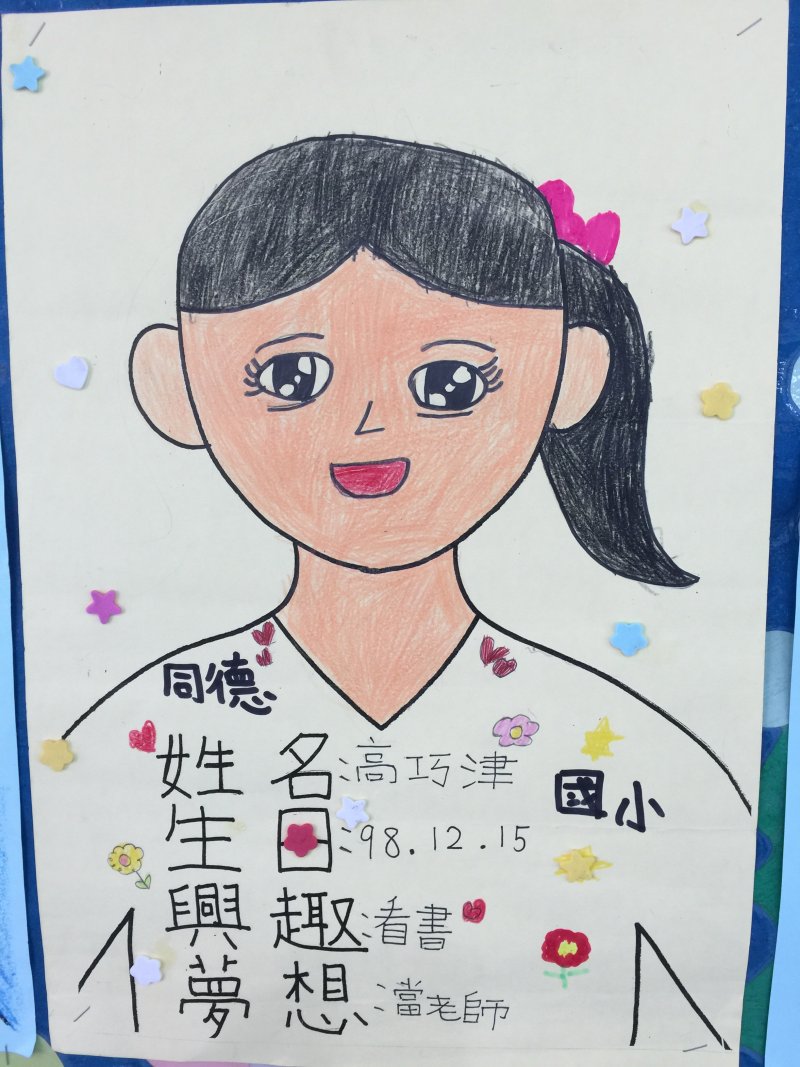 同德
姓名:高巧津
國小
生日:98.12.15
興趣:看書
夢想:當老師